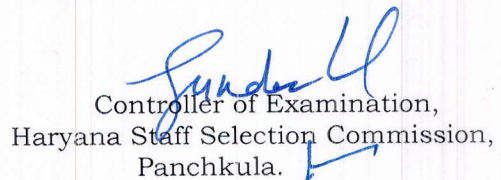 Controller of Examination,
Haryana Staff Selection Commission,
Panchkula.